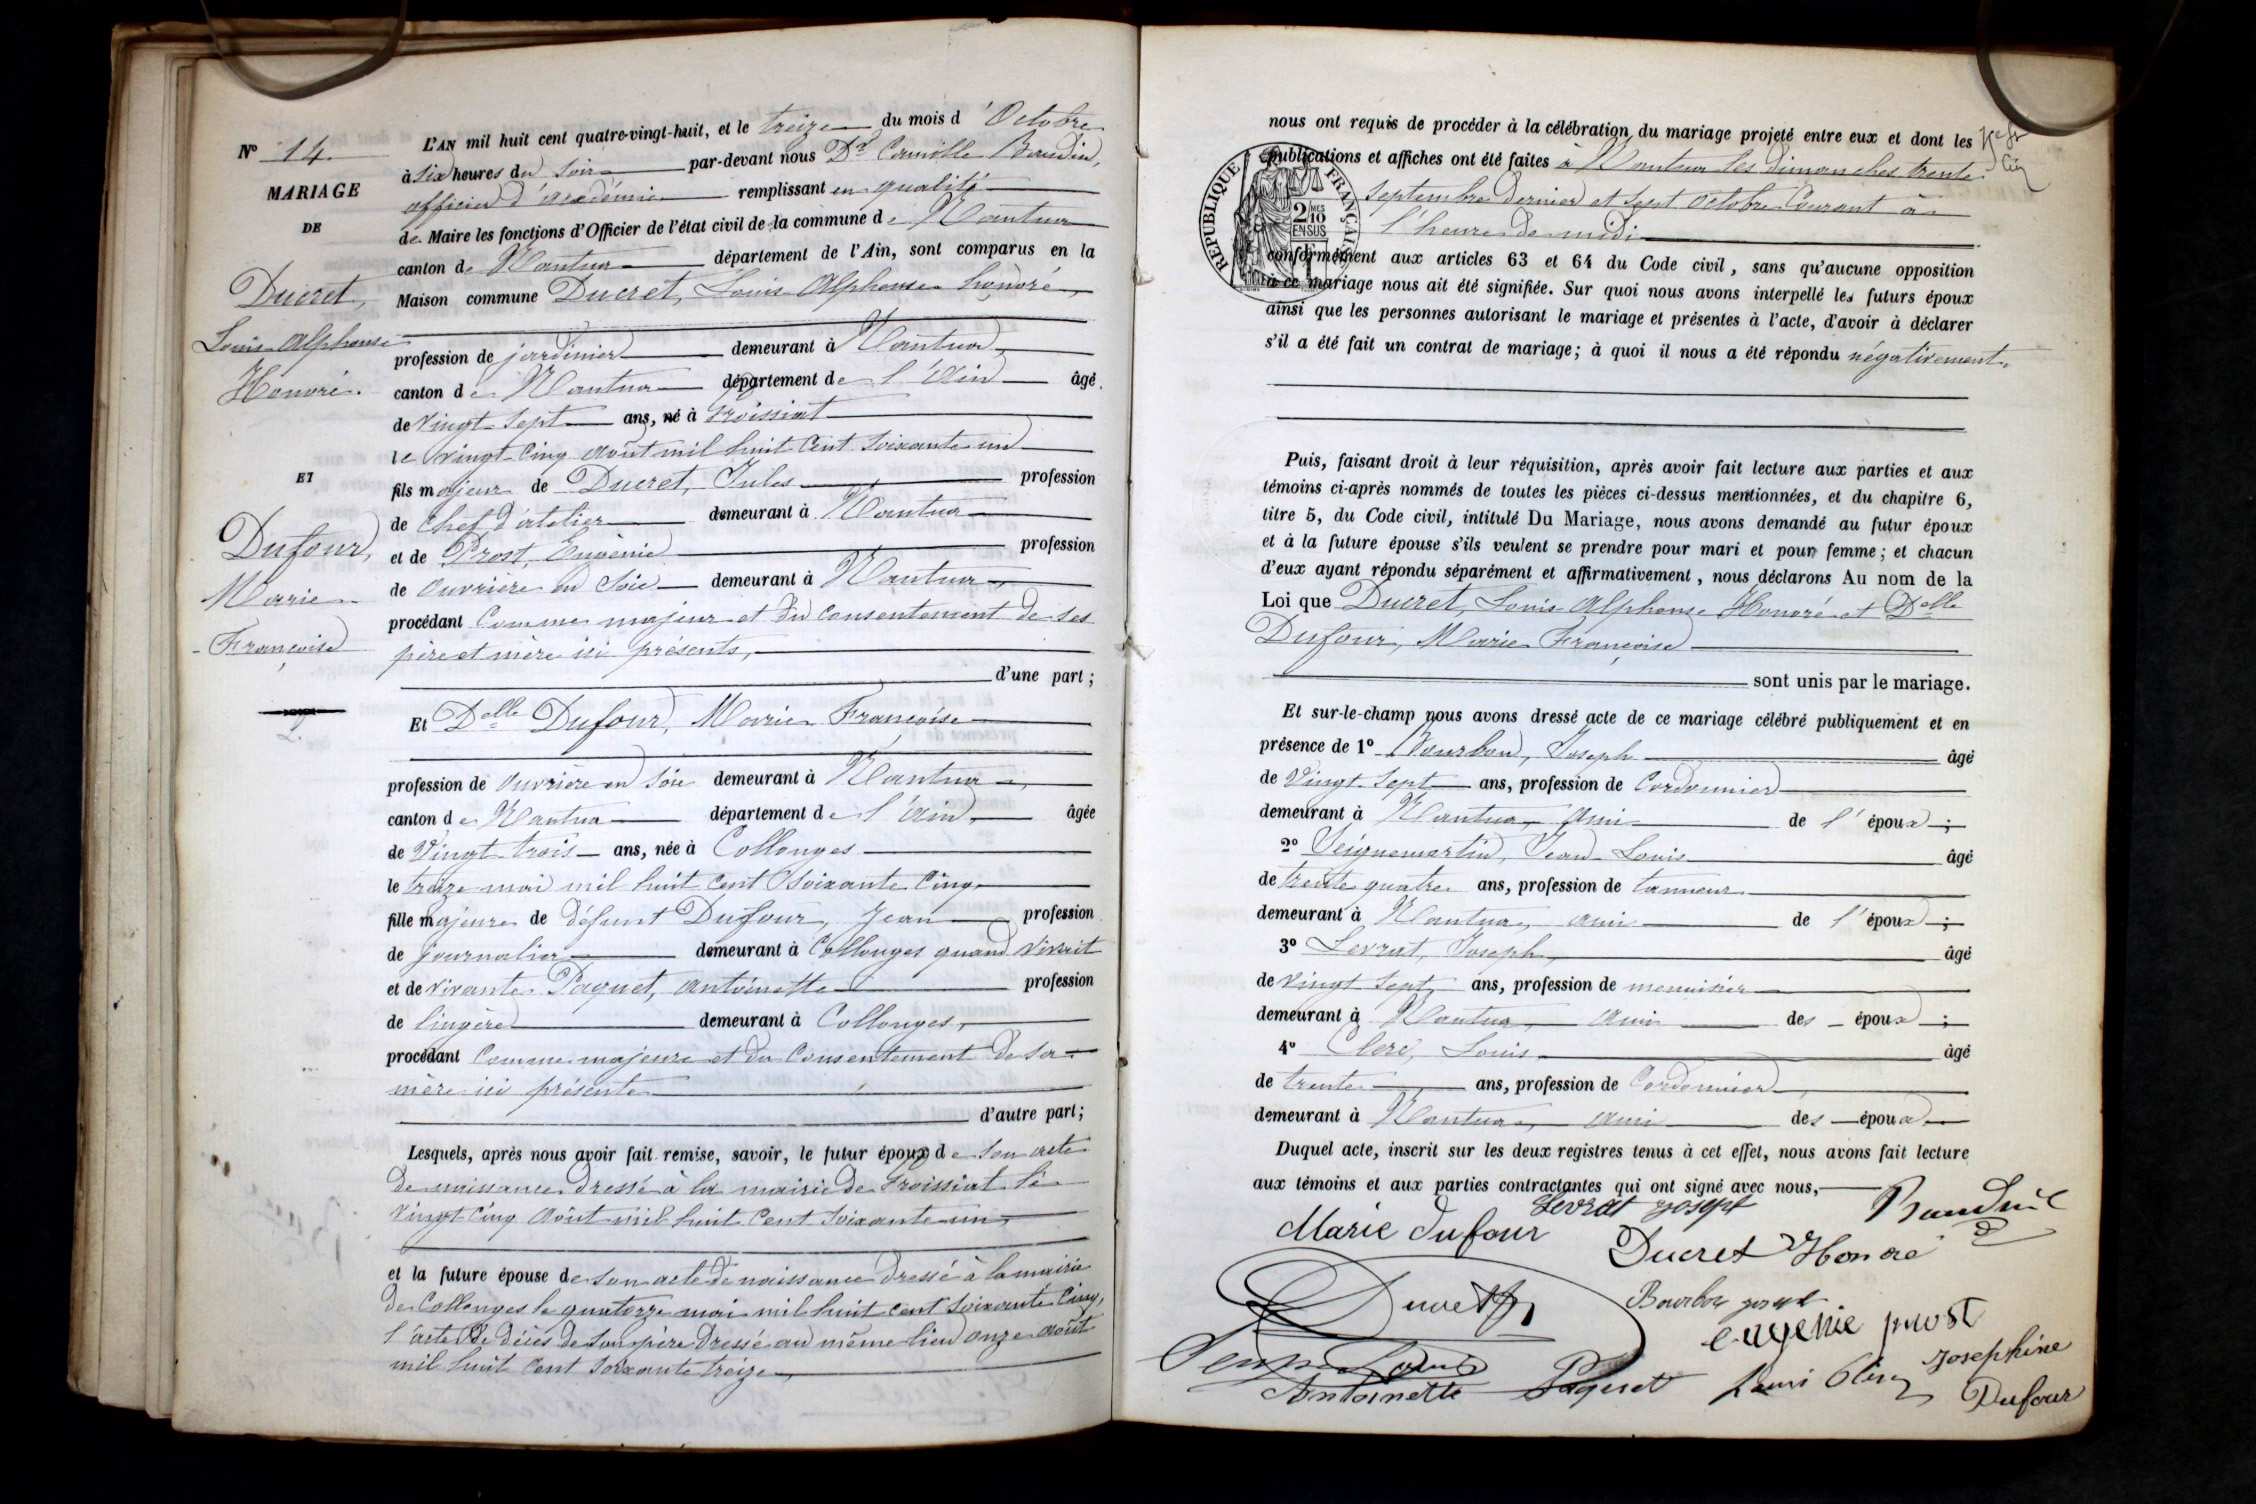 N° 14.
MARIAGE
DE
Ducret,
Louis Alphonse
Honoré.
ET
Dufour,
Marie
Françoise
L'AN mil huit cent quatre-vingt-huit, et le treize du mois d'Octobre
à six heures du soir par-devant nous Dr Camille Baudin,
officier d'académie remplissant en qualité
de Maire les fonctions d'Officier de l'état civil de la commune de Nantua
canton de Nantua département de l'Ain, sont comparus en la
Maison commune Ducret, Louis Alphonse honoré,
profession de jardinier demeurant à Nantua,
canton de Nantua département de l'Ain âgé
de vingt-sept ans, né à Groissiat
le vingt-cinq août mil huit cent soixante un
fils majeur de Ducret, Jules profession
de chef d'atelier demeurant à Nantua
et de Prost, Eugénie profession
de ouvrière en soie demeurant à Nantua,
procédant comme majeur et du consentement de ses
père et mère ici présents,
d'une part ;
Et Delle Dufour, Marie Françoise
profession de ouvrière en soie demeurant à Nantua,
canton de Nantua département de l'Ain, âgée
de Vingt-trois ans, née à Collonges
le treize mai mil huit cent soixante cinq
fille majeure de défunt Dufour, Jean profession
de journalier demeurant à Collonges quand vivait
et de vivante Paquet, Antoinette profession
de lingère demeurant à Collonges,
procédant comme majeure et du consentement de sa
mère ici présente
d'autre part ;
Lesquels, après nous avoir fait remise, savoir, le futur époux de son acte
de naissance dressé à la mairie de Groissiat le
vingt cinq août mil huit cent soixante-un,
et la future épouse de son acte de naissance dressé à la mairie
de Collonges le quatorze mai mil huit cent soixante cinq,
l'acte de décès de son père dressé au même lieu onze août
mil huit cent soixante treize,
nous ont requis de procéder à la célébration du mariage projeté entre eux et dont les
publications et affiches ont été faites à Nantua les dimanches trente
Septembre dernier et sept octobre courant à
l'heure de midi
RÉPUBLIQUE FRANÇAISE
2 MES
10
EN SUS
conformément aux articles 63 et 64 du Code civil, sans qu'aucune opposition
à ce mariage nous ait été signifiée. Sur quoi nous avons interpellé les futurs époux
ainsi que les personnes autorisant le mariage et présentes à l'acte, d'avoir à déclarer
s'il a été fait un contrat de mariage ; à quoi il nous a été répondu négativement.
Puis, faisant droit à leur réquisition, après avoir fait lecture aux parties et aux
témoins ci-après nommés de toutes les pièces ci-dessus mentionnées, et du chapitre 6,
titre 5, du Code civil, intitulé Du Mariage, nous avons demandé au futur époux
et à la future épouse s'ils veulent se prendre pour mari et pour femme ; et chacun
d'eux ayant répondu séparément et affirmativement, nous déclarons Au nom de la
Loi que Ducret, Louis Alphonse Honoré et Delle
Dufour, Marie Françoise
sont unis par le mariage.
Et sur-le-champ nous avons dressé acte de ce mariage célébré publiquement et en
présence de 1° Bourbon, Joseph âgé
de Vingt-Sept ans, profession de Cordonnier
demeurant à Nantua, Ami de l'époux ;
2° Seignemartin, Jean-Louis âgé
de trente quatre ans, profession de tanneur
demeurant à Nantua, ami de l'époux ;
3° Levrat, Joseph, âgé
de vingt sept ans, profession de menuisier
demeurant à Nantua, ami des époux ;
4° Clerc, Louis âgé
de trente ans, profession de Cordonnier
demeurant à Nantua, ami des époux
Duquel acte, inscrit sur les deux registres tenus à cet effet, nous avons fait lecture
aux témoins et aux parties contractantes qui ont signé avec nous,
Levrat Joseph
Marie dufour
Ducret Honoré
Bourbon joseph
eugenie prost
Josephine
Dufour
Antoinette Paquet